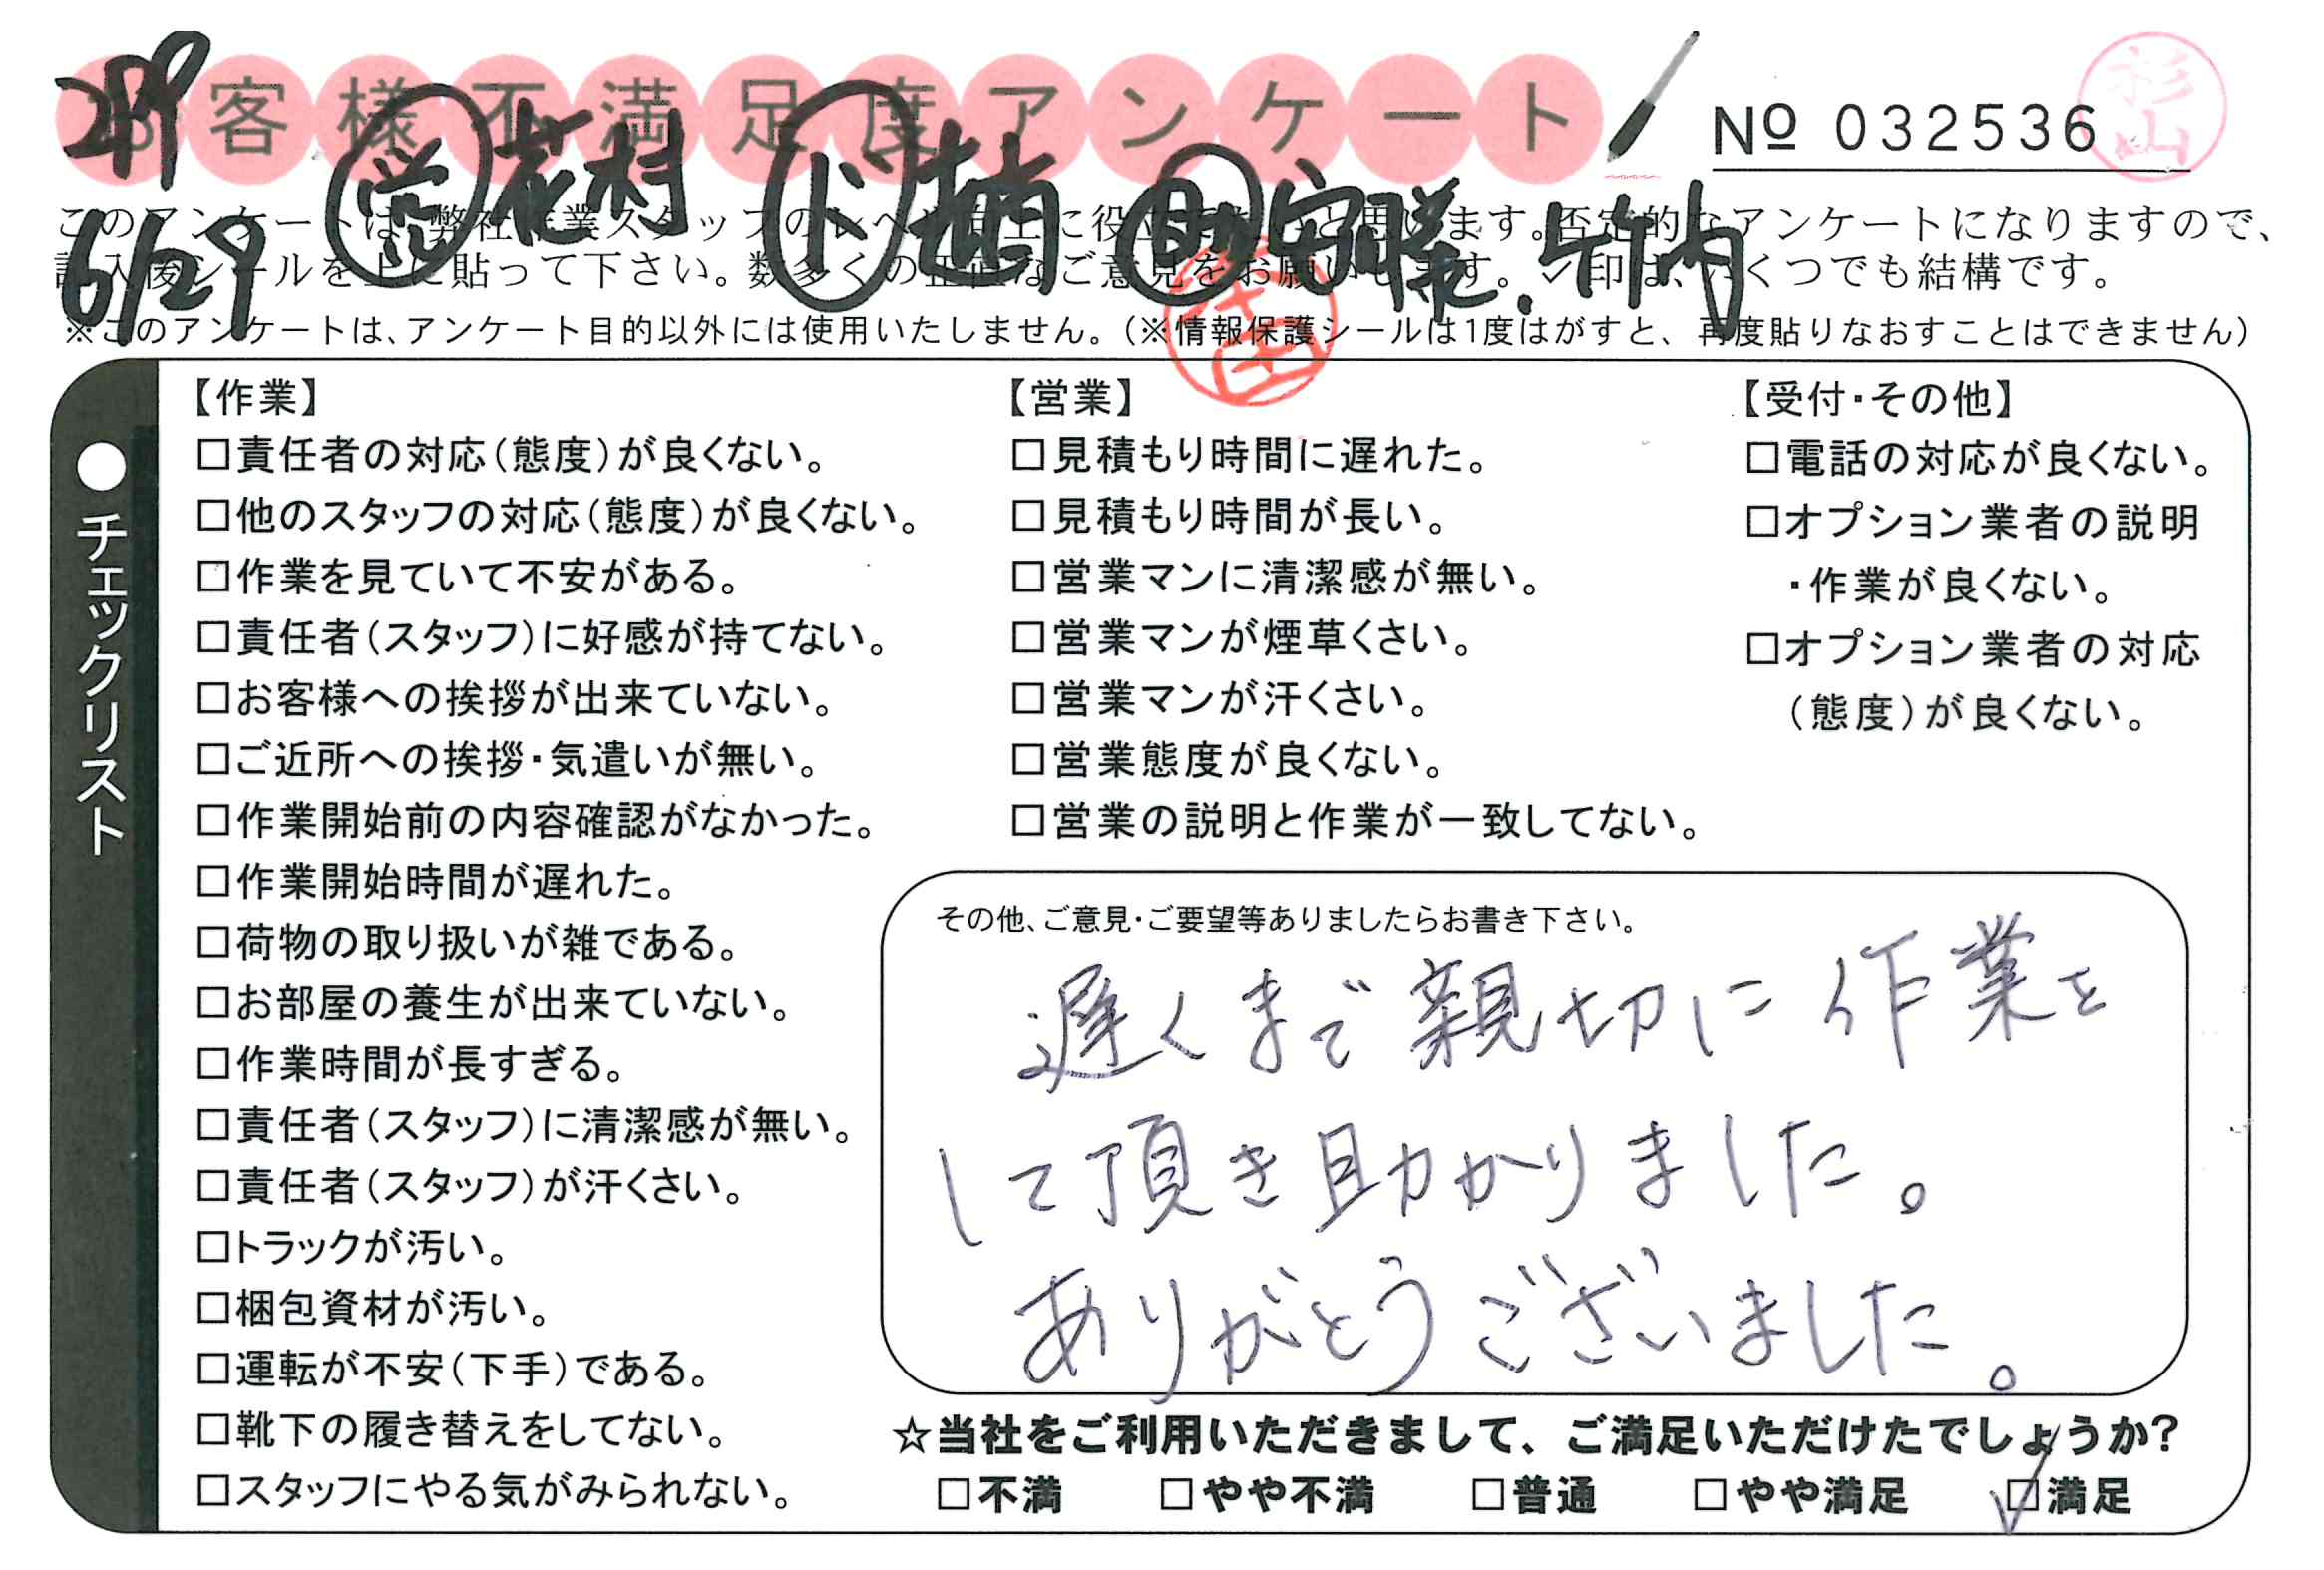 お客様不満足度アンケート
№ 032536
杉山
289
6/29
営 花村 ド 楠 助 安勝.竹内
このアンケートは、弊社作業スタッフのレベル向上に役立てたいと思います。否定的なアンケートになりますので、
記入後シールを上に貼って下さい。数多くの正直なご意見をお願いします。✓印は、いくつでも結構です。
※このアンケートは、アンケート目的以外には使用いたしません。(※情報保護シールは1度はがすと、再度貼りなおすことはできません)
●チェックリスト
【作業】
□責任者の対応(態度)が良くない。
□他のスタッフの対応(態度)が良くない。
□作業を見ていて不安がある。
□責任者(スタッフ)に好感が持てない。
□お客様への挨拶が出来ていない。
□ご近所への挨拶・気遣いが無い。
□作業開始前の内容確認がなかった。
□作業開始時間が遅れた。
□荷物の取り扱いが雑である。
□お部屋の養生が出来ていない。
□作業時間が長すぎる。
□責任者(スタッフ)に清潔感が無い。
□責任者(スタッフ)が汗くさい。
□トラックが汚い。
□梱包資材が汚い。
□運転が不安(下手)である。
□靴下の履き替えをしてない。
□スタッフにやる気がみられない。
【営業】
□見積もり時間に遅れた。
□見積もり時間が長い。
□営業マンに清潔感が無い。
□営業マンが煙草くさい。
□営業マンが汗くさい。
□営業態度が良くない。
□営業の説明と作業が一致してない。
【受付・その他】
□電話の対応が良くない。
□オプション業者の説明
・作業が良くない。
□オプション業者の対応
(態度)が良くない。
その他、ご意見・ご要望等ありましたらお書き下さい。
遅くまで親切に作業を
して頂き助かりました。
ありがとうございました。
☆当社をご利用いただきまして、ご満足いただけたでしょうか?
□不満 □やや不満 □普通 □やや満足 ☑満足